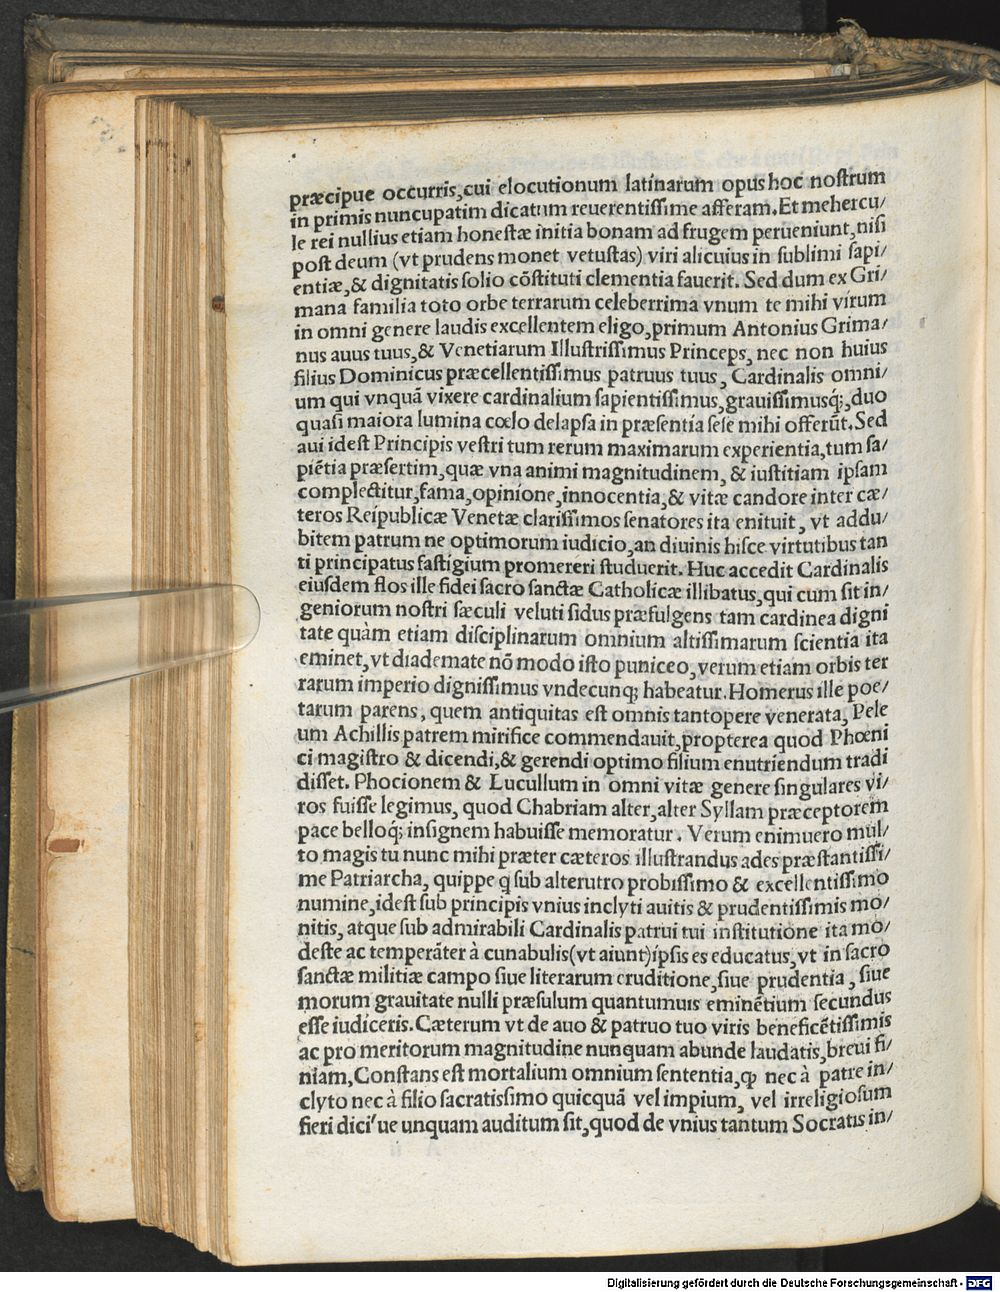 præcipue occurris, cui elocutionum latinarum opus hoc nostrum
in primis nuncupatim dicatum reuerentissime afferam. Et mehercu/
le rei nullius etiam honestæ initia bonam ad frugem perueniunt, nisi
post deum (vt prudens monet vetustas) viri alicuius in sublimi sapi/
entiæ, & dignitatis solio cõstituti clementia fauerit. Sed dum ex Gri/
mana familia toto orbe terrarum celeberrima vnum te mihi virum
in omni genere laudis excellentem eligo, primum Antonius Grima/
nus auus tuus, & Venetiarum Illustrissimus Princeps, nec non huius
filius Dominicus præcellentissimus patruus tuus, Cardinalis omni/
um qui vnquã vixere cardinalium sapientissimus, grauissimusq;, duo
quasi maiora lumina cœlo delapsa in præsentia sese mihi offerũt. Sed
aui idest Principis vestri tum rerum maximarum experientia, tum sa/
piẽtia præsertim, quæ vna animi magnitudinem, & iustitiam ipsam
complectitur, fama, opinione, innocentia, & vitæ candore inter cæ/
teros Reipublicæ Venetæ clarissimos senatores ita enituit, vt addu/
bitem patrum ne optimorum iudicio, an diuinis hisce virtutibus tan
ti principatus fastigium promereri studuerit. Huc accedit Cardinalis
eiusdem flos ille fidei sacro sanctæ Catholicæ illibatus, qui cum sit in/
geniorum nostri sæculi veluti sidus præfulgens tam cardinea digni
tate quàm etiam disciplinarum omnium altissimarum scientia ita
eminet, vt diademate nõ modo isto puniceo, verum etiam orbis ter
rarum imperio dignissimus vndecunq; habeatur. Homerus ille poe/
tarum parens, quem antiquitas est omnis tantopere venerata, Pele
um Achillis patrem mirifice commendauit, propterea quod Phœni
ci magistro & dicendi, & gerendi optimo filium enutriendum tradi
disset. Phocionem & Lucullum in omni vitæ genere singulares vi/
ros fuisse legimus, quod Chabriam alter, alter Syllam præceptorem
pace belloq; insignem habuisse memoratur. Verum enimuero mul/
to magis tu nunc mihi præter cæteros illustrandus ades præstantissi/
me Patriarcha, quippe q sub alterutro probissimo & excellentissimo
numine, idest sub principis vnius inclyti auitis & prudentissimis mo/
nitis, atque sub admirabili Cardinalis patrui tui institutione ita mo/
deste ac temperãter à cunabulis (vt aiunt) ipsis es educatus, vt in sacro
sanctæ militiæ campo siue literarum eruditione, siue prudentia, siue
morum grauitate nulli præsulum quantumuis eminẽtium secundus
esse iudiceris. Cæterum vt de auo & patruo tuo viris beneficẽtissimis
ac pro meritorum magnitudine nunquam abunde laudatis, breui fi/
niam, Constans est mortalium omnium sententia, ꝙ nec à patre in/
clyto nec à filio sacratissimo quicquã vel impium, vel irreligiosum
fieri dici'ue unquam auditum sit, quod de vnius tantum Socratis in/
Digitalisierung gefördert durch die Deutsche Forschungsgemeinschaft - DFG